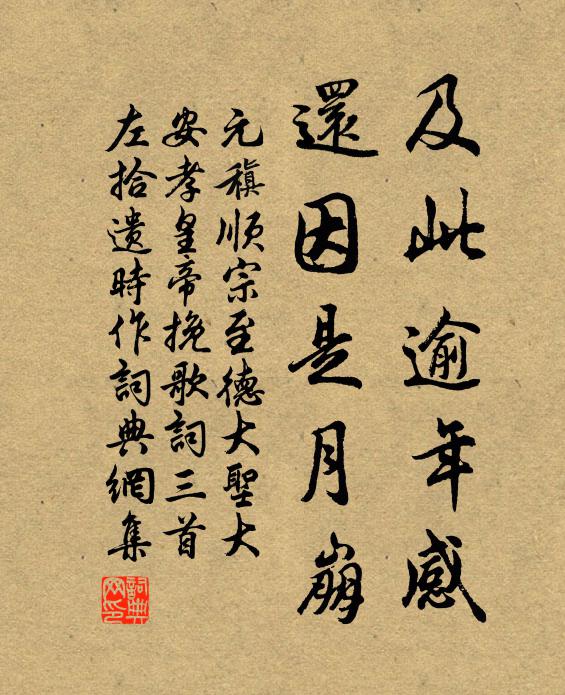 及此逾年感
還因是月崩
元稹順宗至德大聖大
安孝皇帝挽歌詞三首
左拾遺時作詞典網集
詞典
网印